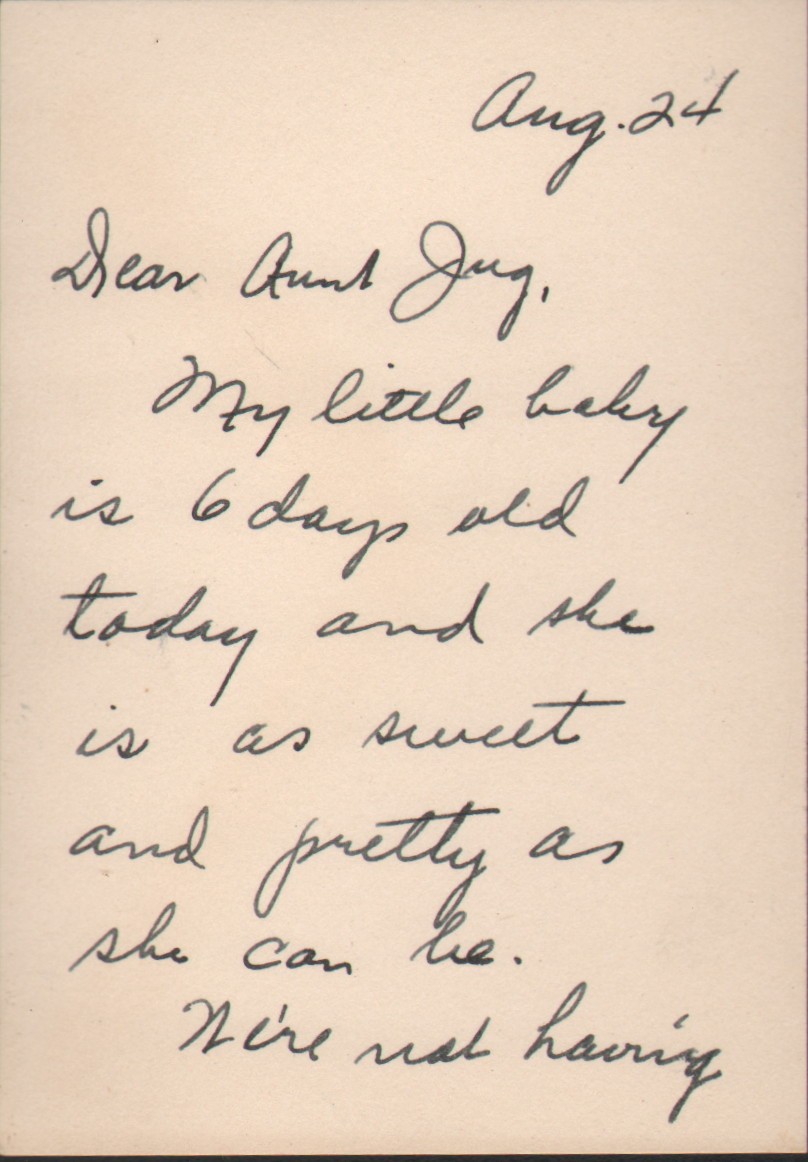 Aug. 24
Dear Aunt Jug,
My little baby
is 6 days old
today and she
is as sweet
and pretty as
she can be.
We're not having